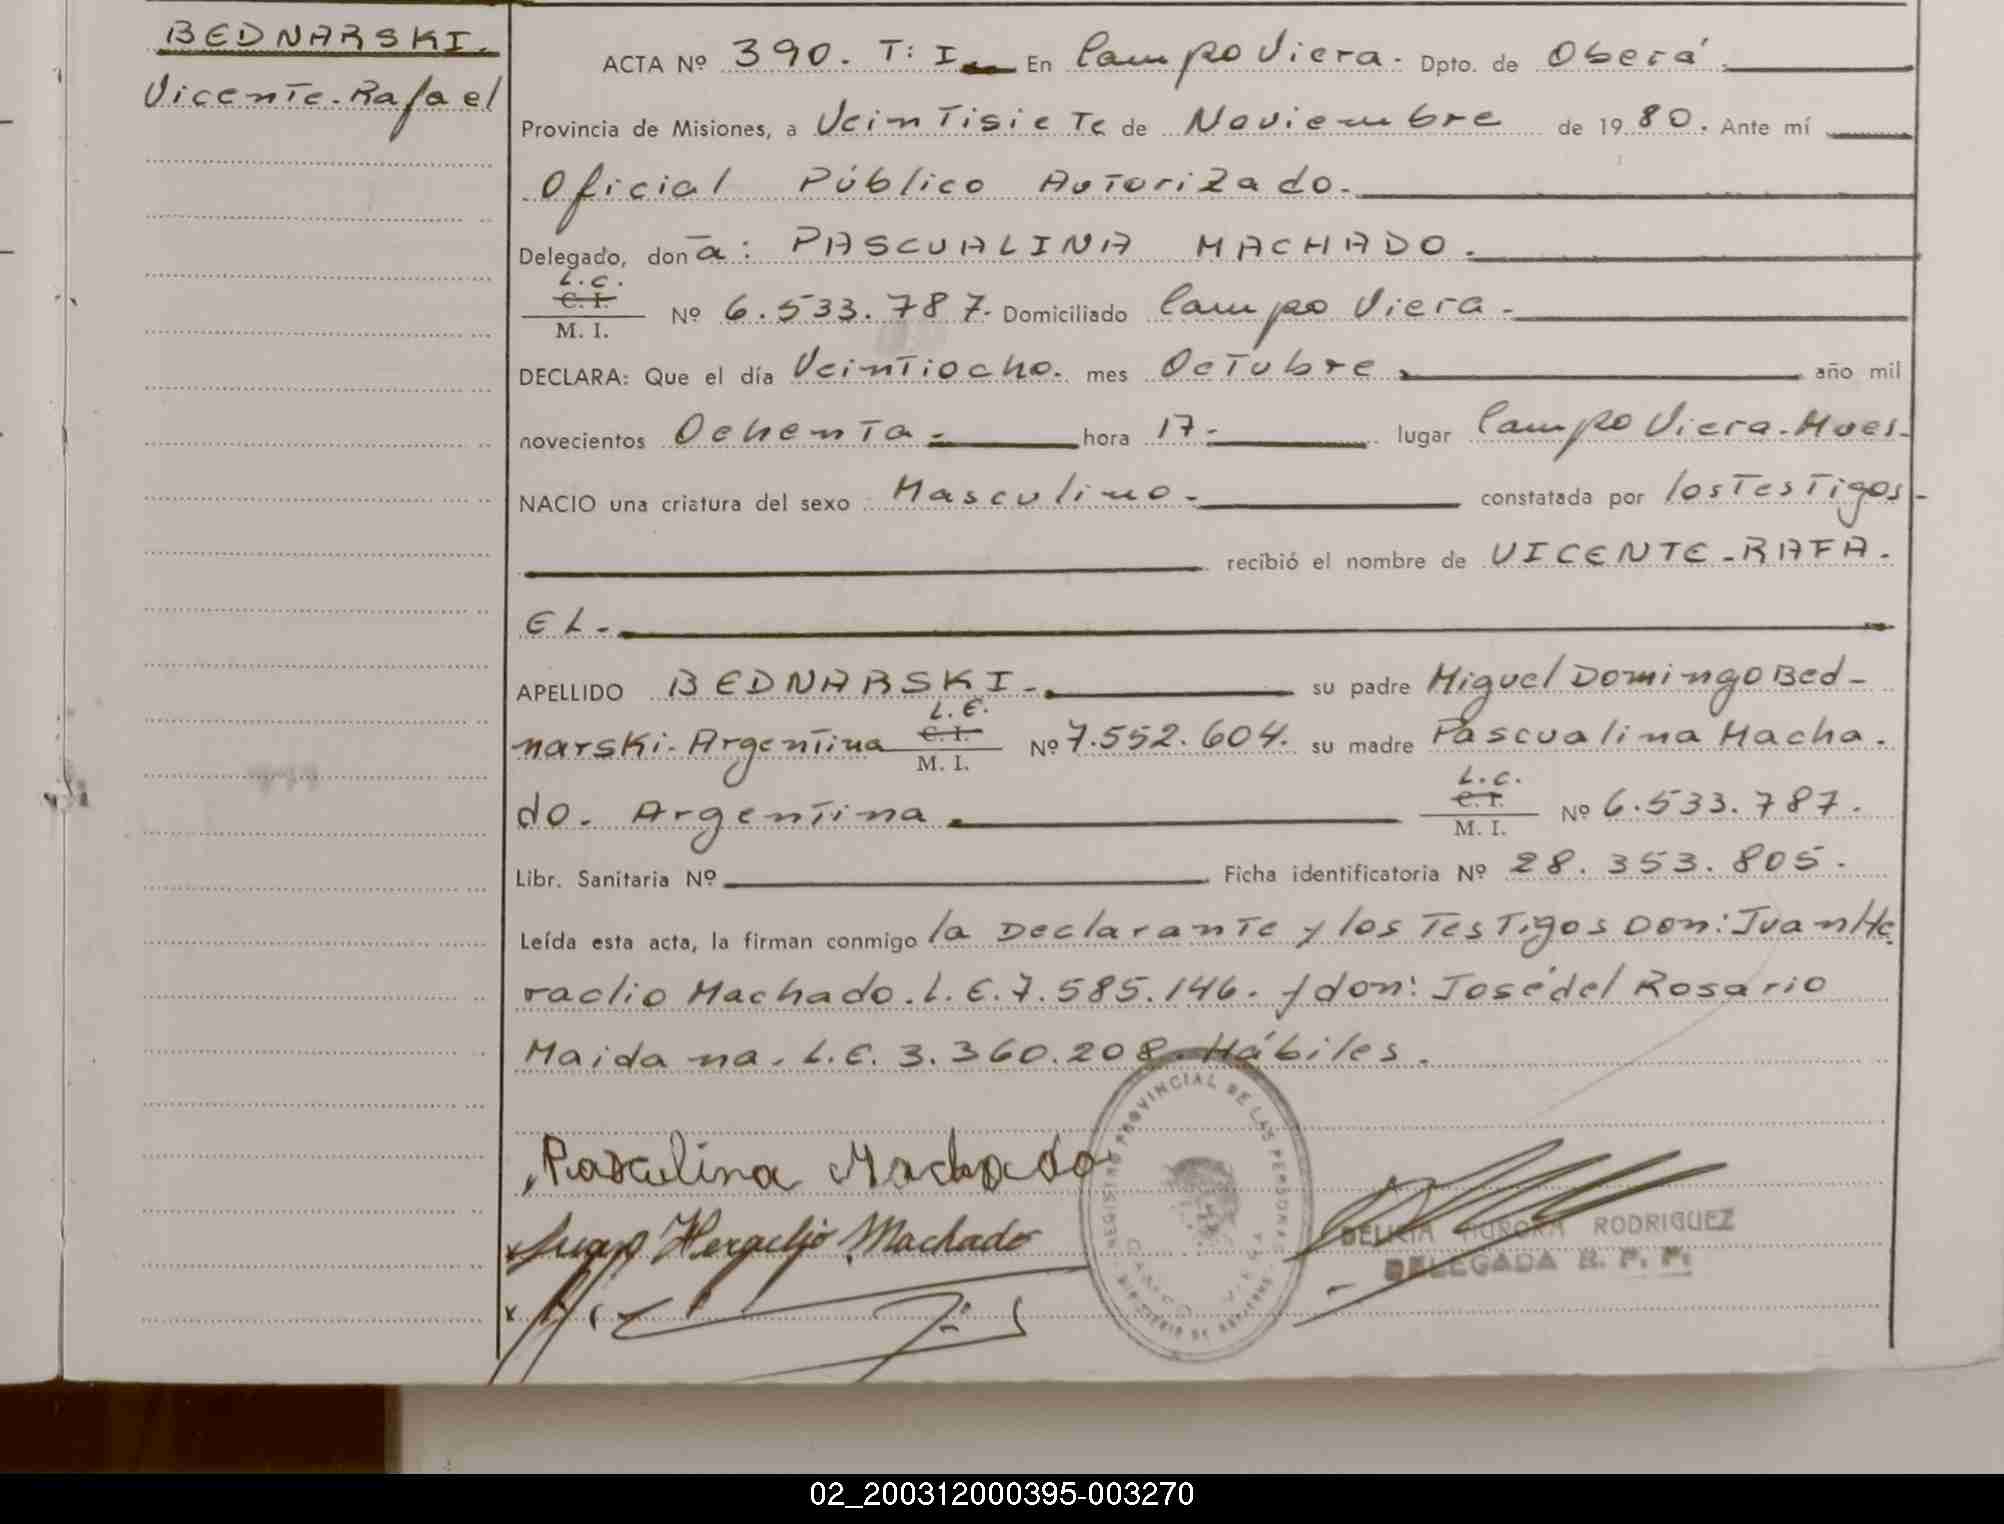 BEDNARSKI.
Vicente-Rafael
ACTA Nº 390. T: I En Campo Viera. Dpto. de Oberá.
Provincia de Misiones, a Veintisiete de Noviembre de 1980. Ante mí
Oficial Público Autorizado.
Delegado, don a: PASCUALINA MACHADO.
L.C.
C.I.
M. I. Nº 6.533.787. Domiciliado Campo Viera.
DECLARA: Que el día Veintiocho. mes Octubre. año mil
novecientos Ochenta. hora 17. lugar Campo Viera-Mnes-
NACIO una criatura del sexo Masculino. constatada por los Testigos-
recibió el nombre de VICENTE-RAFA-
EL.
APELLIDO BEDNARSKI. su padre Miguel Domingo Bed-
L.E.
narski. Argentina C.I. M. I. Nº 7.552.604. su madre Pascualina Macha-
L.C.
do. Argentina. C.I. M. I. Nº 6.533.787.
Libr. Sanitaria Nº Ficha identificatoria Nº 28.353.805.
Leída esta acta, la firman conmigo la Declarante y los Testigos Don: Juan He
raclio Machado. L.E. 7.585.146. y don: José del Rosario
Maidana. L.E. 3.360.208. Hábiles.
Pasculina Machado
Juan Heraclio Machado
REGISTRO PROVINCIAL DE LAS PERSONAS
CAMPO VIERA
AURORA RODRIGUEZ
DELEGADA R. P. P.
02_200312000395-003270